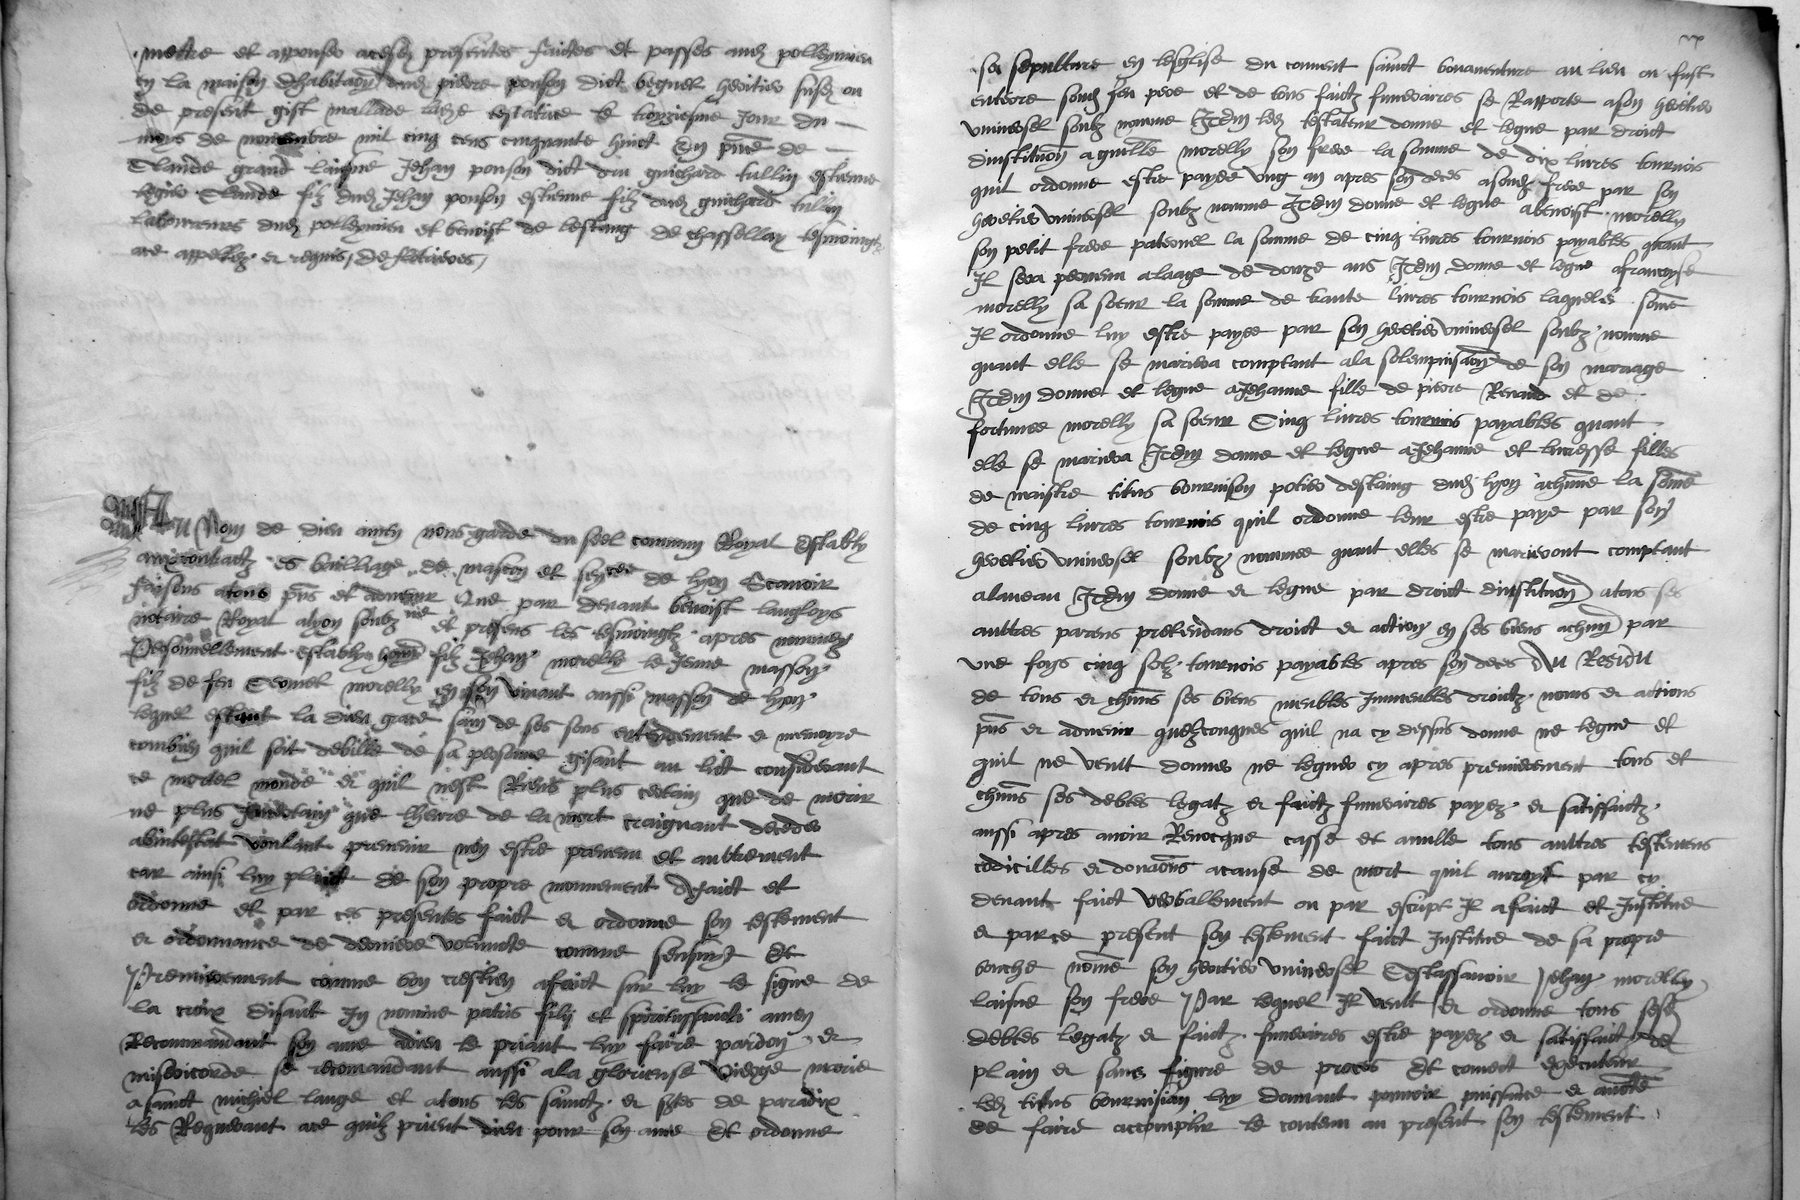 mettre et apposer a cesd presentes faictes et passes aud polleymieu
en la maison dhabitaon dud pierre ponson dict beguel heritier susd ou
de present gist mallade lade testatrice le troysiesme jour du
moys de novembre mil cinq cens cinquante huict En pnce de
Claude grand laigne Jehan ponson dict dru guichard tullin estienne
legier Claude filz dud Jehan ponson estienne filz dud guichard tullin
laboureurs dud polleymieu et benoist de lestang de chassellay tesmoingtz
ace appellez et requis, de feltrieves,
Au Nom de dieu amen nous garde du seel commun Royal Estably
aux contractz es bailliage de mascon et senesee de lyon Scavoir
faisons a tous pns et advenir Que par devant benoist langloys
notaire Royal a lyon soubz ne et presens les tesmoingtz apres nommez
Personnellement estably honme filz Jehan morelly le Jeune masson
filz de feu morelly en son vivant aussi masson de lyon
lequel estant la dieu grace sain de ses sens entendement et memoyre
combien quil soit debille de sa personne gisant au lict considerant
ce mortel monde et quil nest Riens plus certain que de morir
ne plus Jncertain que lheure de la mort craignant deceder
abintestat voulant prevenir non estre prevenu et aultrement
car ainsi luy plaict de son propre mouvement A faict et
ordonne et par ces presentes faict et ordonne son testement
et ordonnance de derniere volunte comme sensuyt Et
Premierement comme bon crestien a faict sur luy le signe de
la croix disant Jn nomine patris filij et spiritussancti amen
Recommandant son ame a dieu le priant luy faire pardon et
misericorde se recomandant aussi a la glorieuse vierge marie
a sainct michiel lange et a tous les sainctz et sctes de paradix
les Requerant ace quilz prient dieu pour son ame Et ordonne
sa sepulture en lesglise du couvent sainct bonaventure au lieu ou fust
enterre soud feu pere et de tous faictz funeraires se Rapporte a son heritier
universel soubz nomme Jtem led testateur donne et legue par droict
dinstitution a guillme morelly son frere la somme de dix livres tournois
quil ordonne estre payee ung an apres son deces a soud frere par son
heritier universel soubz nomme Jtem donne et legue a benoist morelly
son petit frere paternel la somme de cinq livres tournois payables quant
Jl sera pervenu a laage de douze ans Jtem donne et legue a francoyse
morelly sa soeur la somme de trante livres tournois laquelle some
Jl ordonne luy estre payee par son heritier universel soubz nomme
quant elle se mariera comptant a la solempnisaon de son mariage
Jtem donne et legue a Jehanne fille de pierre Renaud et de
fortunee morelly sa soeur Cinq livres tournois payables quant
elle se mariera Jtem donne et legue a Jehanne et lucresse filles
de maistre titus bournison potier destaing dud lyon achune la some
de cinq livres tournois quil ordonne leur estre paye par son
heritier universel soubz nommee quant elles se marieront comptant
a laneau Jtem donne et legue par droict dinstitution a tous ses
aultres parens pretendans droict et action en ses biens achun par
une foys cinq solz tournois payables apres son deces Au Residu
de tous et chuns ses biens meubles Jmmeubles droictz noms et actions
pns et advenir quelzconques quil na cy dessus donne ne legue et
quil ne veult donner ne leguer cy apres premierement tous et
chuns ses debtes legatz et faictz funeraires payez et satisffaictz
aussi apres avoir Revocque casse et anulle tous aultres testemens
codicilles et donaons a cause de mort quil auroyt par cy
devant faict verballement ou par escript Jl a faict et Justitue
et par ce present son testement faict Justitue de sa propre
bouche nomme son heritier universel Cestassavoir Jehan morelly
laisne son frere Par lequel Jl veult et ordonne tous sesd
debtes legatz et faictz funeraires estre payez et satisffaict de
plain et sans figure de proces Et comect executeur
led titus bournisian luy donnant pouvoir puissance et aucte
de faire accomplir le contenu au present son testement